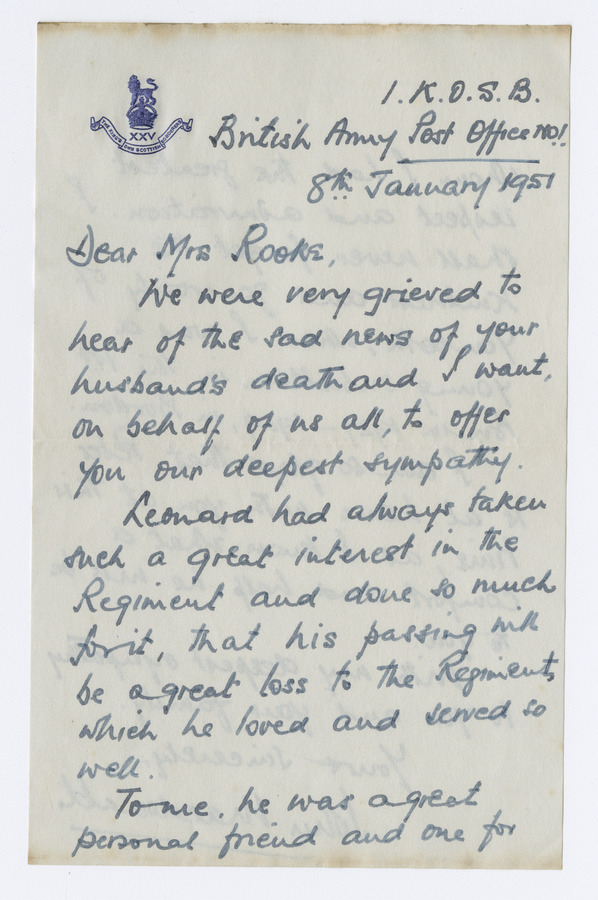 XXV
THE KING'S OWN SCOTTISH BORDERERS
1. K. O. S. B.
British Army Post Office No 1.
8th January 1951
Dear Mrs Rooke,
We were very grieved to
hear of the sad news of your
husband's death and I want,
on behalf of us all, to offer
you our deepest sympathy.
Leonard had always taken
such a great interest in the
Regiment and done so much
for it, that his passing will
be a great loss to the Regiment,
which he loved and served so
well.
To me, he was a great
personal friend and one for